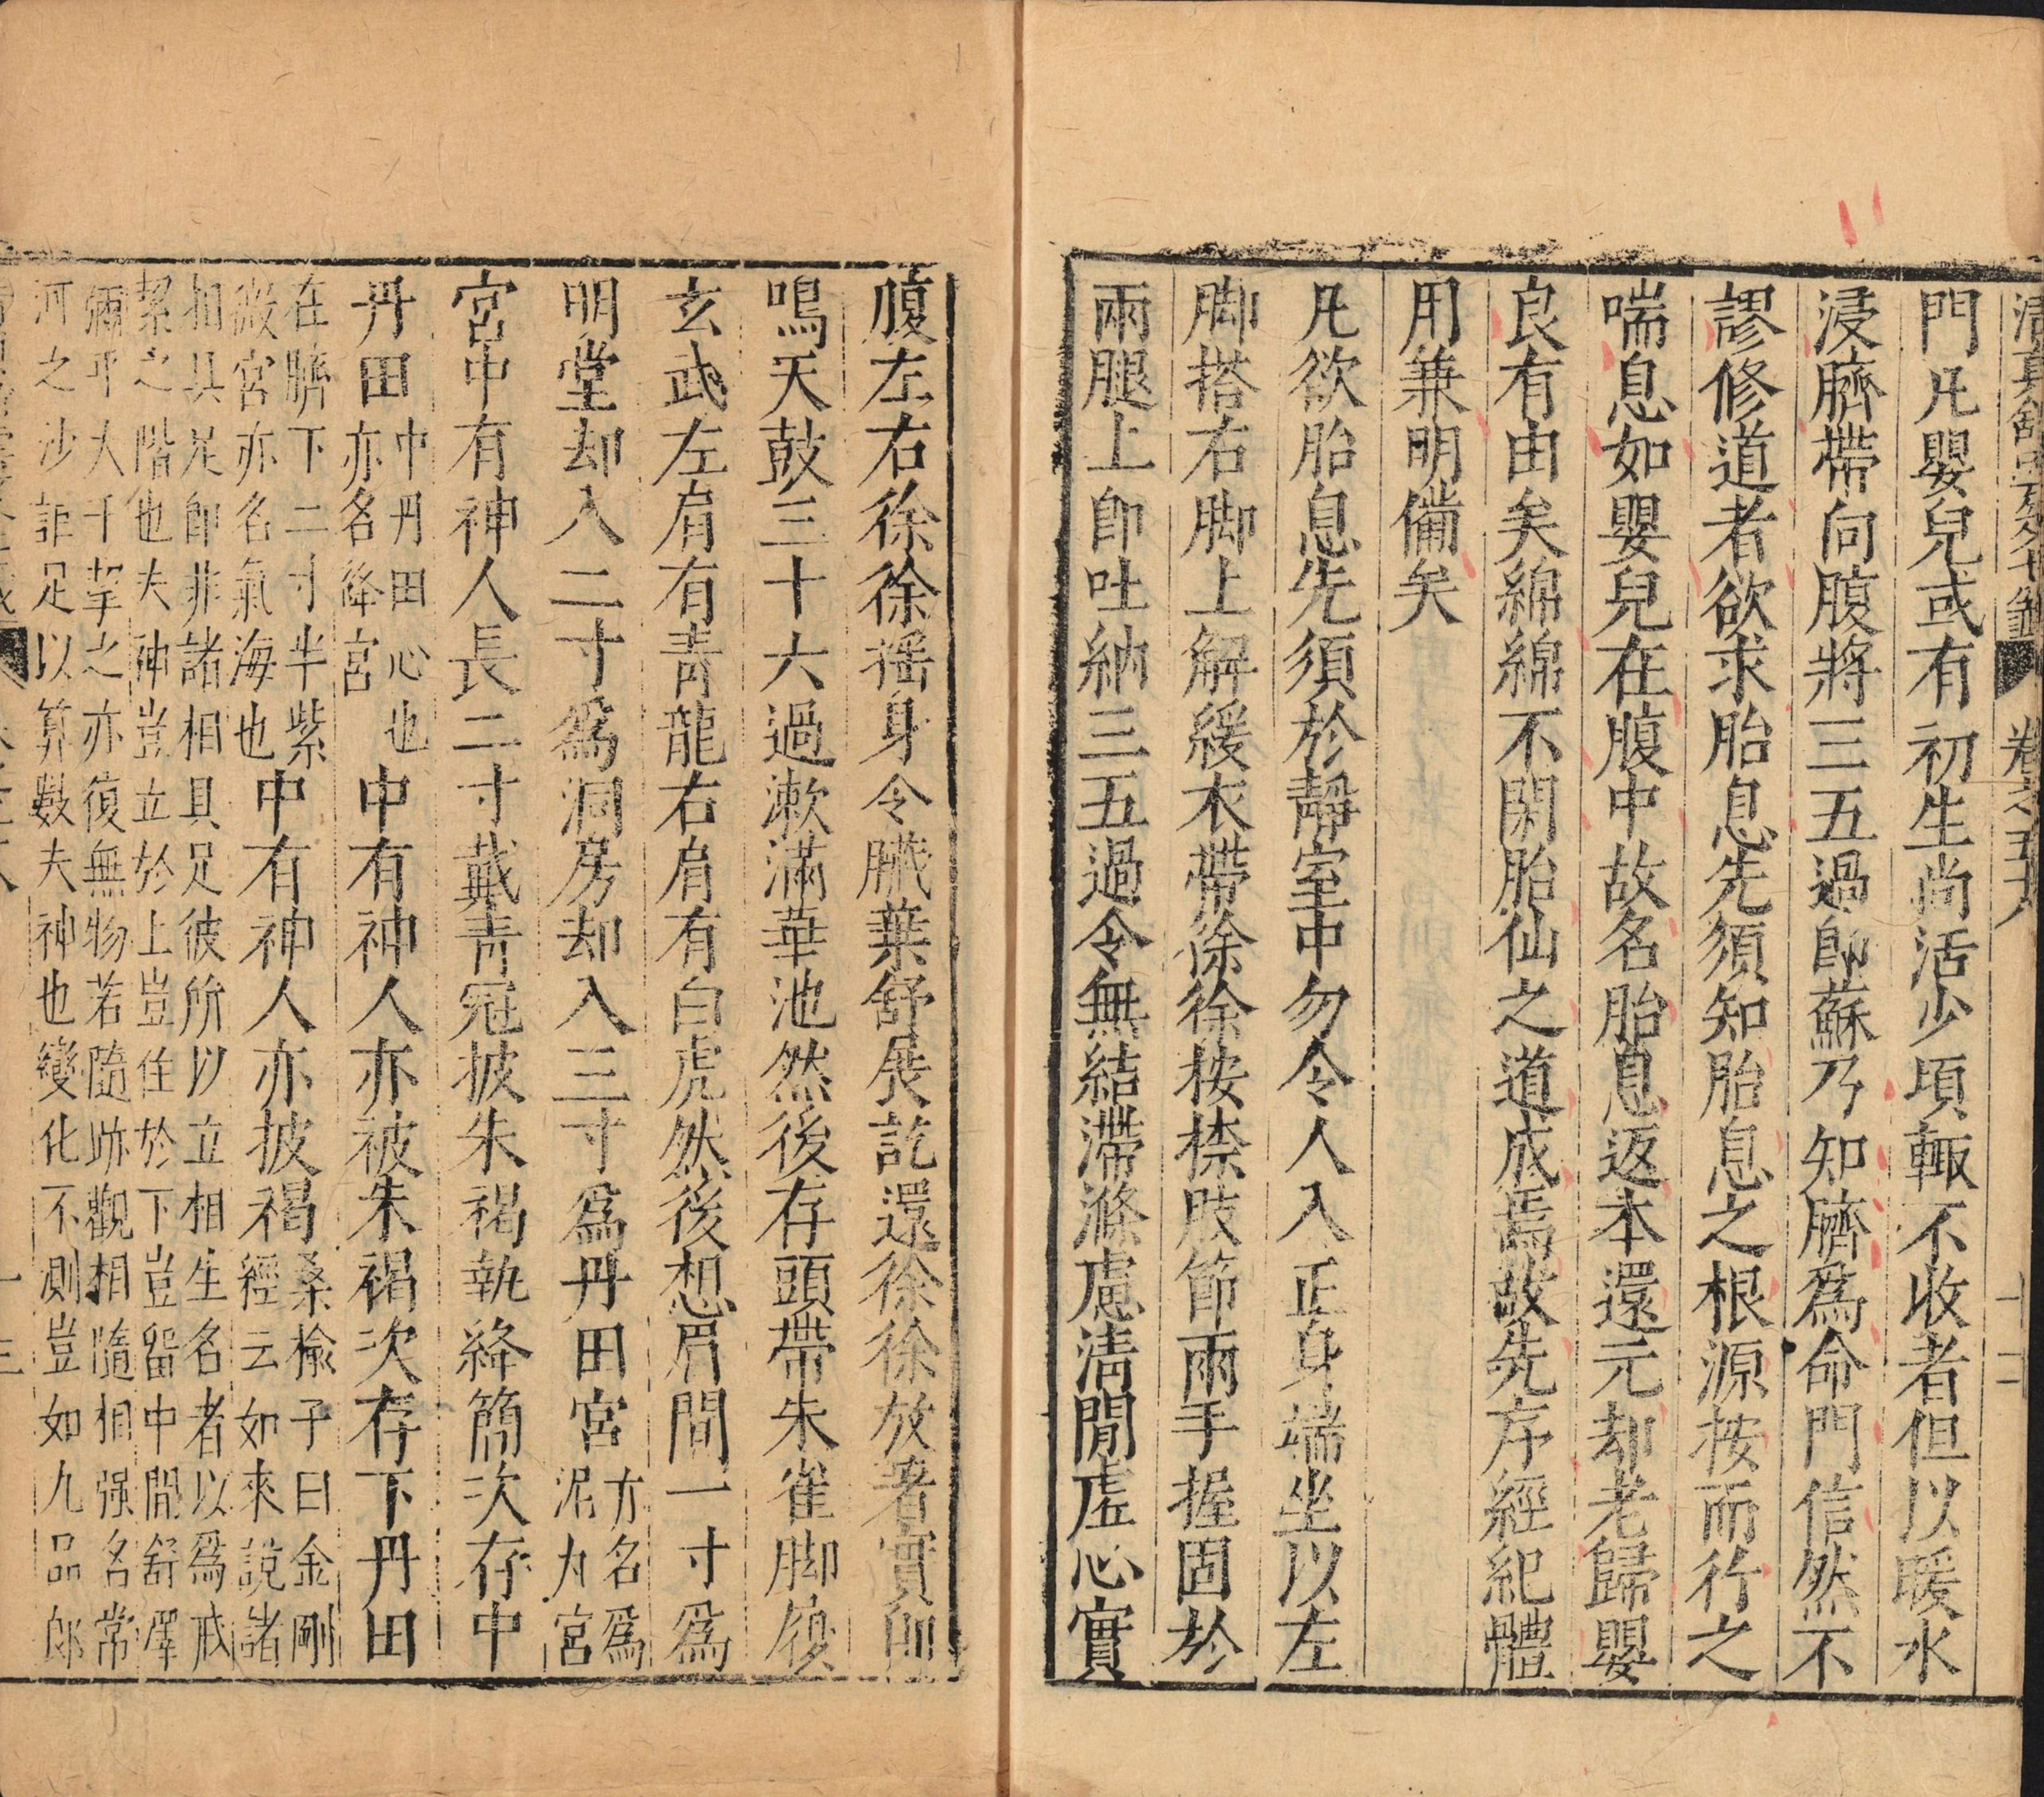 卷之五十八
十二
門凡嬰兒或有初生尚活少頃輙不收者但以暖水
浸臍帶向腹將三五過卽蘇乃知臍爲命門信然不
謬修道者欲求胎息先須知胎息之根源按而行之
喘息如嬰兒在腹中故名胎息返本還元却老歸嬰
良有由矣綿綿不閑胎仙之道成焉故先序經紀體
用兼明備矣
凡欲胎息先須於靜室中勿令人入正身端坐以左
脚搭右脚上解緩衣帶徐徐按捺肢節兩手握固於
兩腿上卽吐納三五過令無結滯滌慮清閒虛心實
腹左右徐徐摇身令臟葉舒展訖還徐徐放著實卽
鳴天鼓三十六過漱滿華池然後存頭帶朱雀脚履
玄武左肩有靑龍右肩有白虎然後想眉間一寸爲
明堂却入二寸爲洞房却入三寸爲丹田宮方名爲泥丸宮
宮中有神人長二寸戴靑冠披朱褐執絳簡次存中
丹田中丹田心也亦名絳宮中有神人亦被朱褐次存下丹田
在臍下二寸半紫微宮亦名氣海也中有神人亦披褐桑榆子曰金剛經云如來說諸
相具足卽非諸相具足彼所以立相生名者以爲戒
絜之階也夫神豈立於上豈住於下豈留中間舒澤
彌乎大千挈之亦復無物若隨跡觀相隨相强名常
河之沙詎足以算數夫神也變化不測豈如九品郎
十三